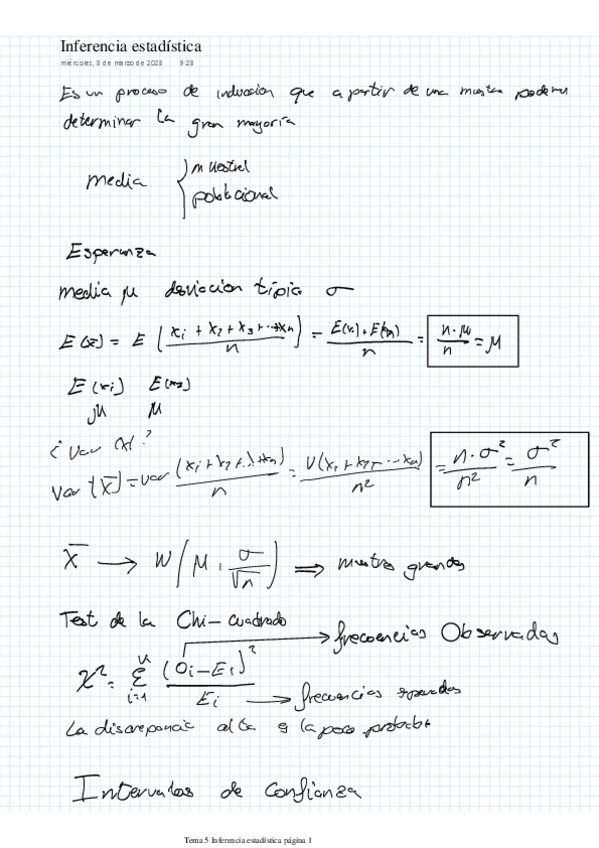 Inferencia estadística
miércoles, 8 de marzo de 2023 9:23
Es un proceso de inducción que a partir de una muestra podemos
determinar la gran mayoría
media { muestral
poblacional
Esperanza
media μ desviacion típica σ
E(x̄) = E (x₁ + x₂ + x₃ + ... + xₙ / n) = E(x₁) + E(xₙ) / n = n·μ / n = μ
E(x₁) E(x₂)
μ μ
¿Var x̄?
Var (x̄) = var (x₁ + x₂ + ... + xₙ) / n = V(x₁ + x₂ + ... xₙ) / n² = n·σ² / n² = σ² / n
X̄ → N(μ, σ/√n) ⇒ muestra grandes
Test de la Chi-cuadrado
frecuencias Observadas
χ² = Σ i=1 k (Oi - Ei)² / Ei → frecuencias esperadas
La discrepancia alta es la poco probable
Intervalos de Confianza
Tema 5 Inferencia estadística página 1